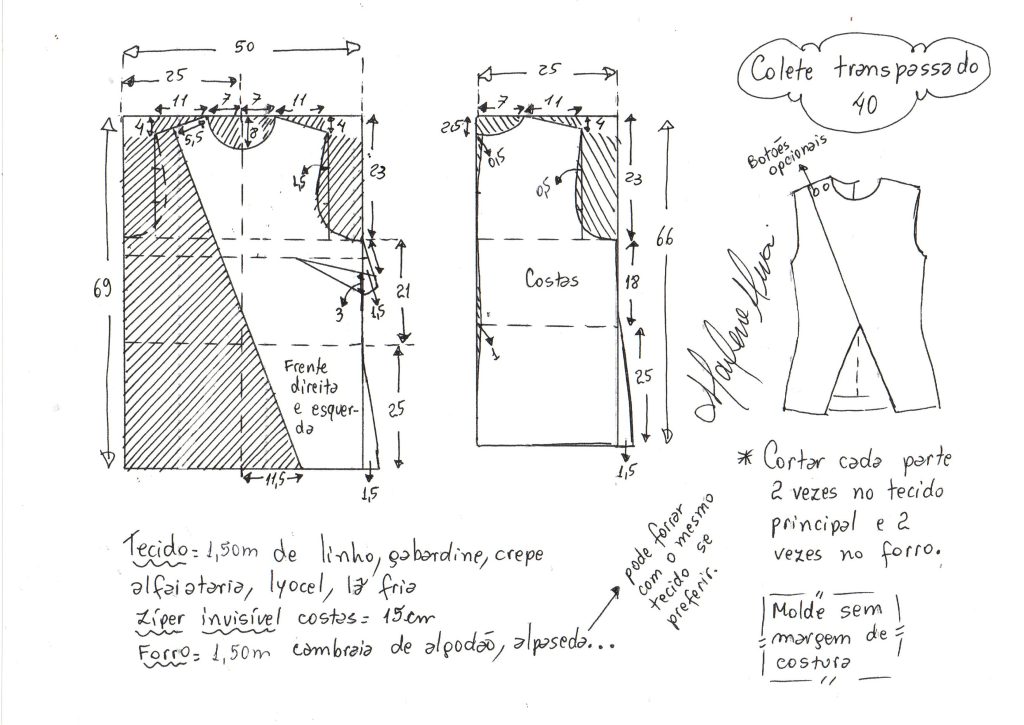 Colete transpassado
40
50
25
11
7
7
11
4
5,5
8
4
1,5
23
69
3
1,5
21
Frente
direita
e esquer-
da
25
11,5
1,5
25
7
11
2,5
4
0,5
0,5
23
66
Costas
18
1
25
1,5
Botões
opcionais
* Cortar cada parte
2 vezes no tecido
principal e 2
vezes no forro.
Molde sem
margem de
costura
Tecido = 1,50m de linho, gabardine, crepe
alfaiataria, lyocel, lã fria
Zíper invisível costas = 15cm
Forro = 1,50m cambraia de algodão, alpaseda...
pode forrar
com o mesmo
tecido se
preferir.